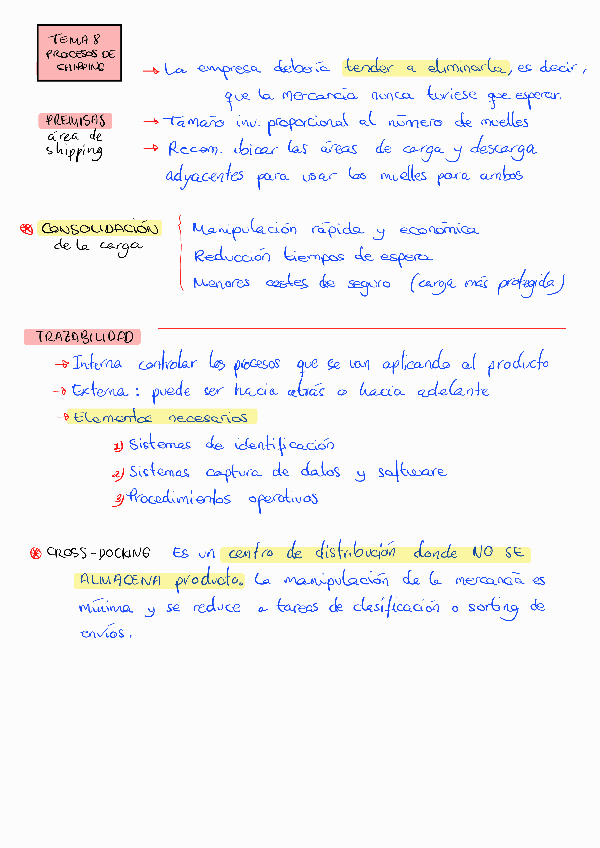 TEMA 8
PROCESOS DE
SHIPPING
→ La empresa debería tender a eliminarla, es decir,
que la mercancía nunca tuviese que esperar.
PREMISAS
área de
shipping
→ Tamaño inv. proporcional al número de muelles
→ Recom. ubicar las áreas de carga y descarga
adyacentes para usar los muelles para ambos
* CONSOLIDACIÓN
de la carga
Manipulación rápida y económica
Reducción tiempos de espera
Menores costes de seguro (carga más protegida)
TRAZABILIDAD
→ Interna controlar los procesos que se van aplicando al producto
→ Externa: puede ser hacia atrás o hacia adelante
→ Elementos necesarios
1) Sistemas de identificación
2) Sistemas captura de datos y software
3) Procedimientos operativos
* CROSS-DOCKING Es un centro de distribución donde NO SE
ALMACENA producto. La manipulación de la mercancía es
mínima y se reduce a tareas de clasificación o sorting de
envíos.